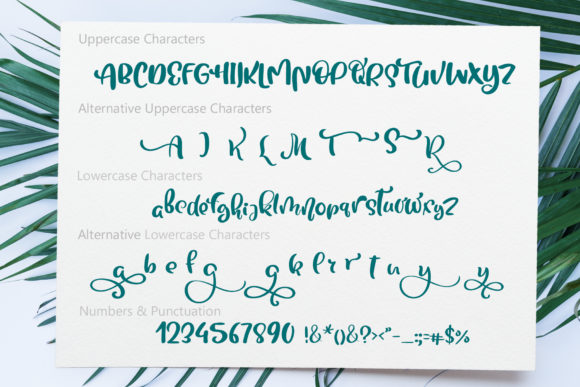 Uppercase Characters
ABCDEFGHIJKLMNOPQRSTUVWXYZ
Alternative Uppercase Characters
A J K L M T S R
Lowercase Characters
abcdefghijklmnopqrstuvwxyz
Alternative Lowercase Characters
g b e f g g k l r r t u y y
Numbers & Punctuation
1234567890 !&*()&?><"-_:;=#$%